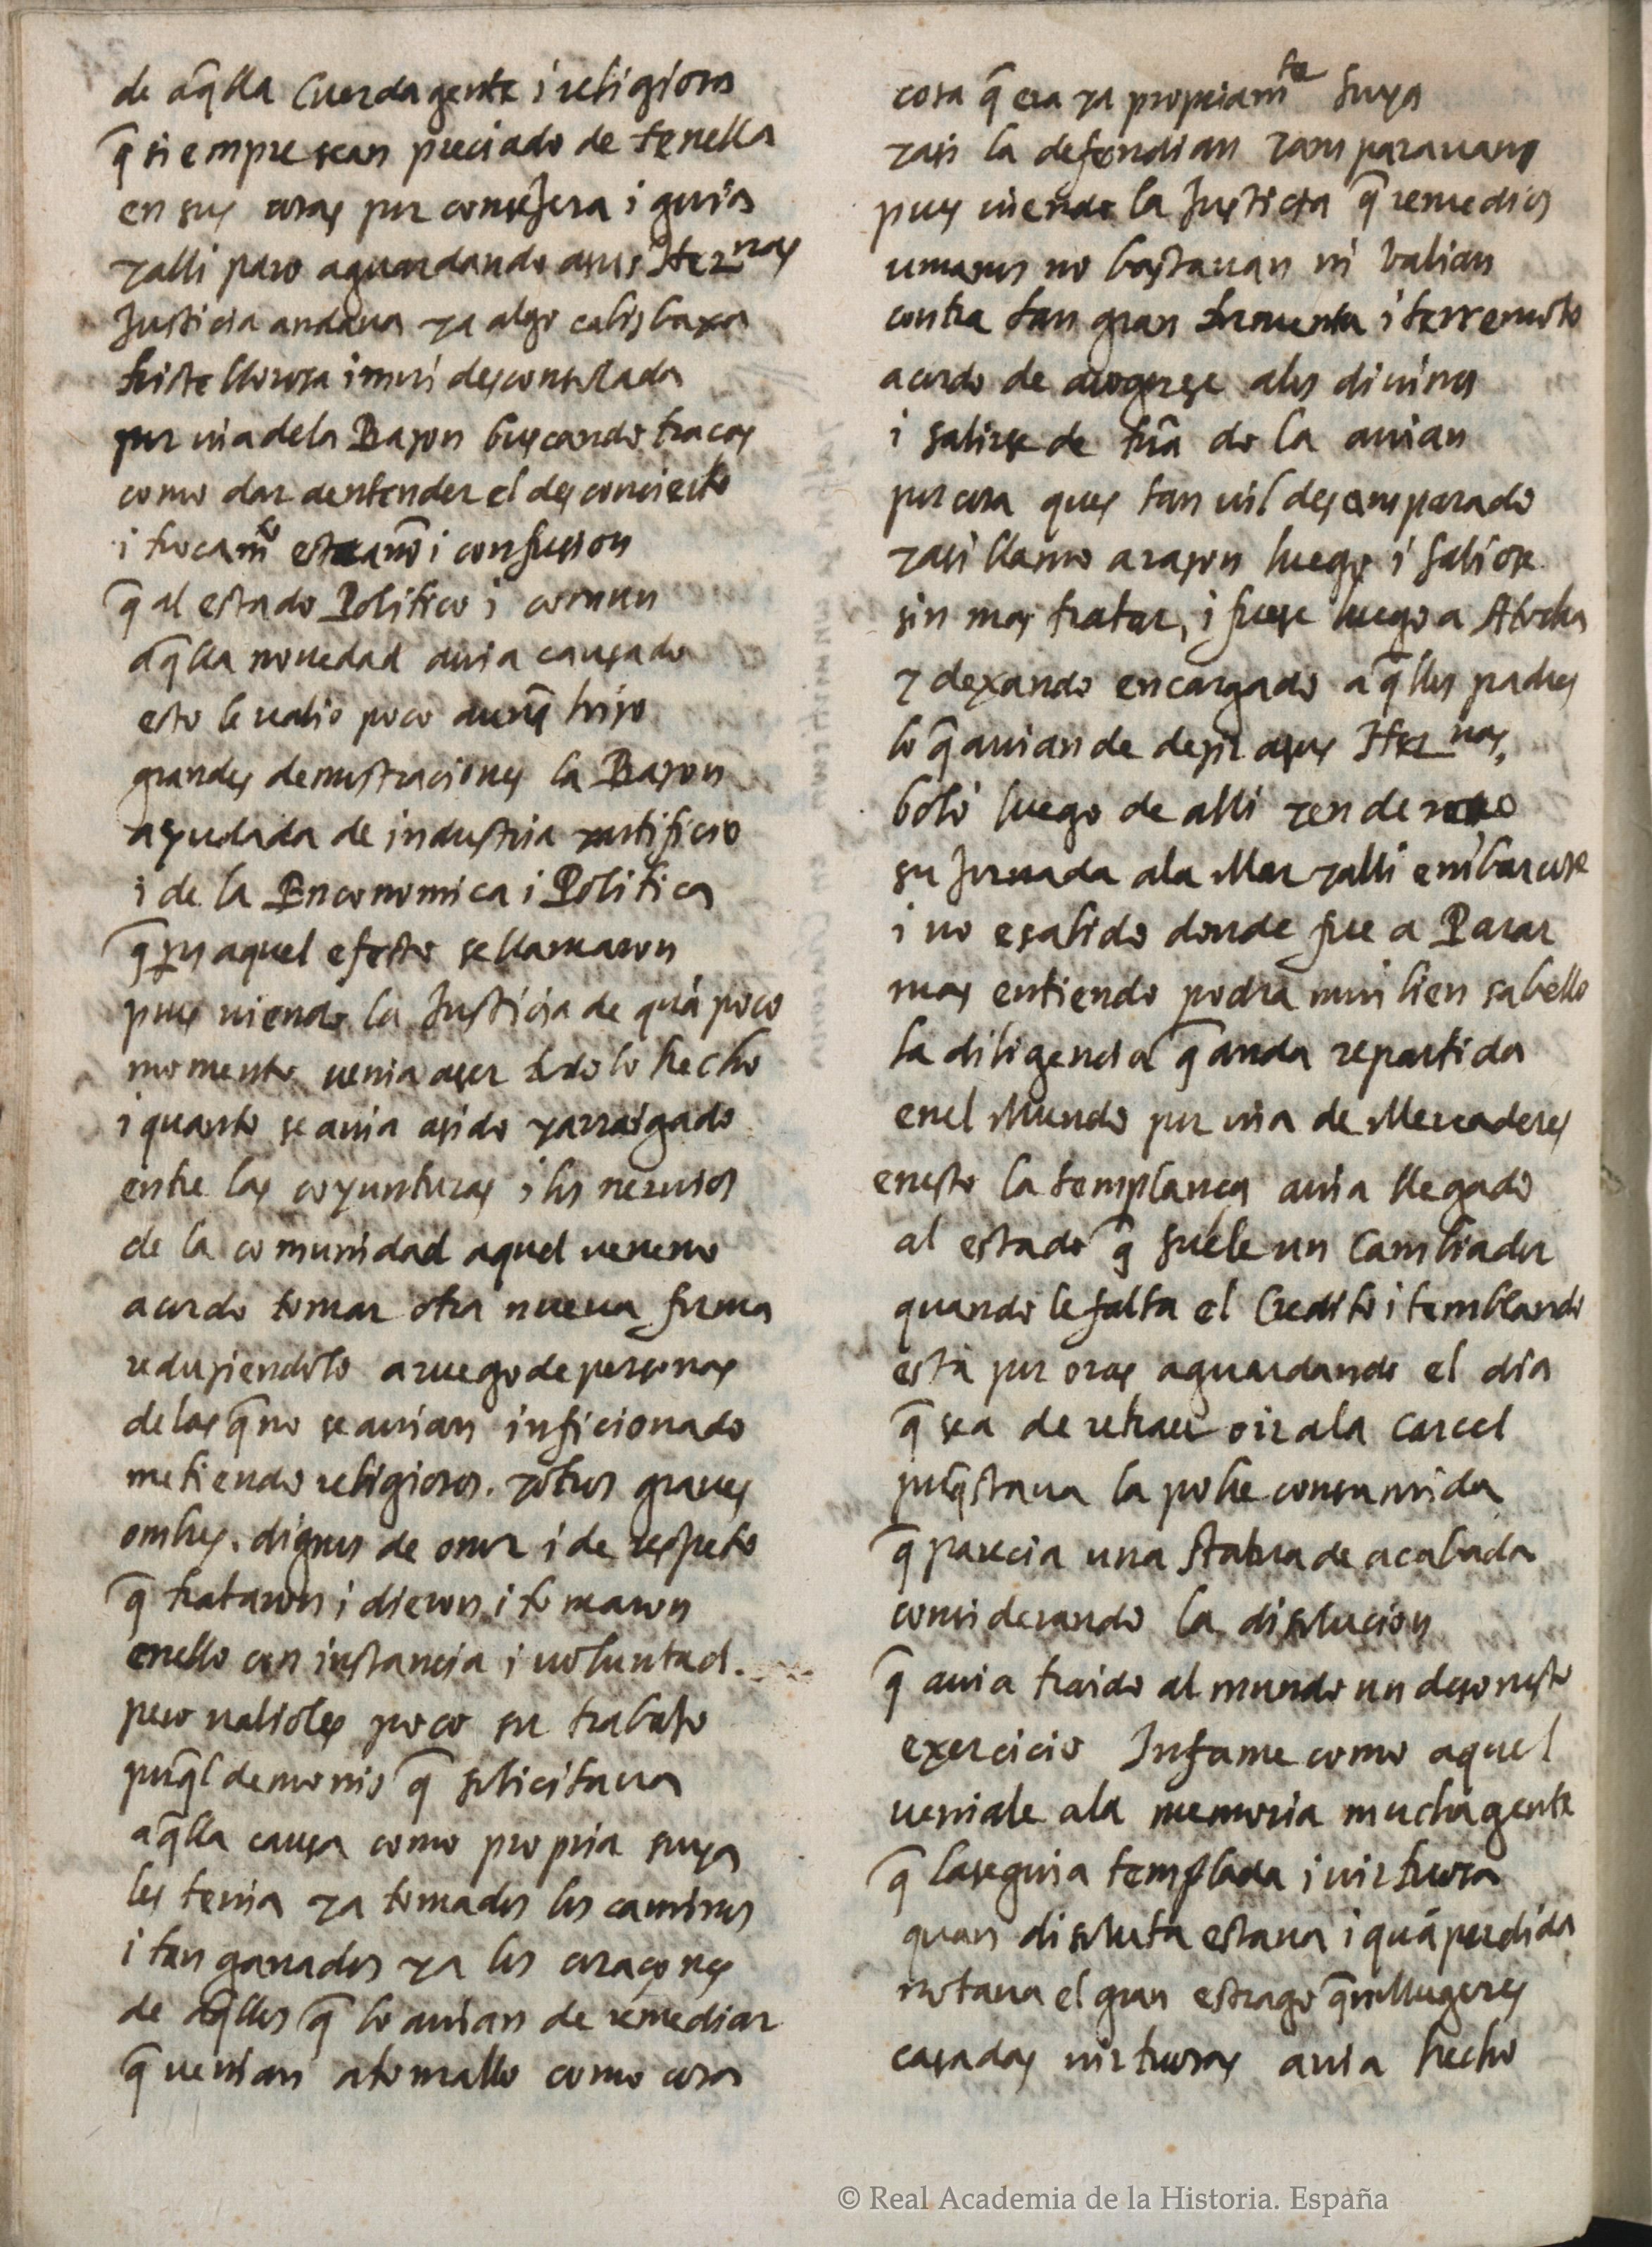 de aq̃lla Cuerda gente i religiosa
q̃ siempre sean preciado de tenella
en sus cosas por consejera i guia
yalli paro aguardando asus Her nas
Justicia andaua ya algo cabisbaxa
triste llorosa i mui desconsolada
por uia dela Razon buscando tracas
como dar aentender el desconcierto
i trocamº estraño i confusion
q̃ al estado Politico i comun
aq̃lla nouedad auia causado
esto le ualio poco aunq̃ hizo
grandes demostraciones la Razon
ayudada de industria yartificio
i de la Enconomica i Politica
q̃ pa aquel efecto se llamaron
pues uiendo la Justicia de quã poco
momento uenia aser todo lo hecho
i quanto se auia asido yarraigado
entre las coyunturas i los neruios
de la comunidad aquel ueneno
acordo tomar otra nueua forma
reduziendolo a ruego de personas
delas q̃ no se auian inficionado
metiendo religiosos. yotros graues
ombres. dignos de onor i de respeto
q̃ trataron i dieron i tomaron
enello con instancia i uoluntad.
pero ualioles poco su trabajo
porq̃l demonio q̃ solicitaua
aq̃lla causa como propria suya
les tenia ya tomados los caminos
i tan ganados ya los coraçones
de aq̃llos q̃ lo auian de remediar
q̃ uenian atomallo como cosa
cosa q̃ era ya propiamte suya
yasi la defendian yamparauan
pues uiendo la Justicia q̃ remedios
umanos no bastauan ni balian
contra tan gran tormenta i terremoto
acordo de acogerse alos diuinos
i salirse de trã do la auian
por cosa ques tan uil desamparado
yasi llamo arazon luego i saliose
sin mas tratar, i fuese luego a Atocha
y dexando encargado aq̃llos padres
lo q̃ auian de dezir asus Her nas,
boló luego de alli yenderezo
su jornada ala Mar yalli embarcose
i no esabido donde fue a Parar
mas entiendo podra mui bien sabello
la diligencia q̃ anda repartida
enel Mundo por uia de Mercaderes
enesto la templança auia llegado
al estado q̃ suele un Cambiador
quando le falta el Credito i temblando
està por oras aguardando el dia
q̃ sea de retraer oir ala carcel
porq̃staua la pobre consumida
q̃ parecia una statua de acabada
considerando la disolucion
q̃ auia traido al mundo un desonesto
exercicio Infame como aquel
ueniale ala memoria mucha gente
q̃ laseguia templada i uirtuosa
quan disoluta estaua i quã perdida
notaua el gran estrago q̃n Mugeres
casadas uirtuosas auia hecho
© Real Academia de la Historia. España